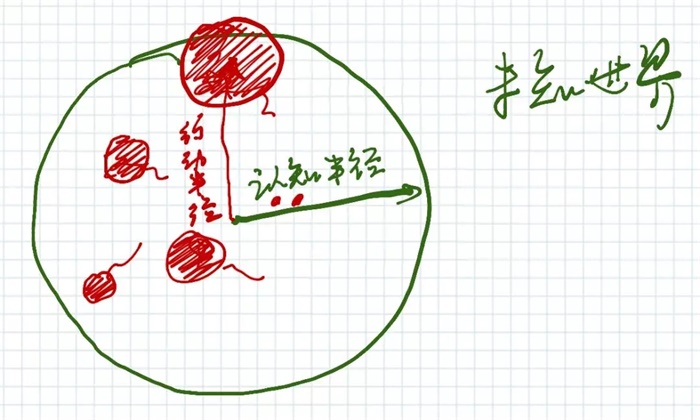 未知世界
行动半径
认知半径